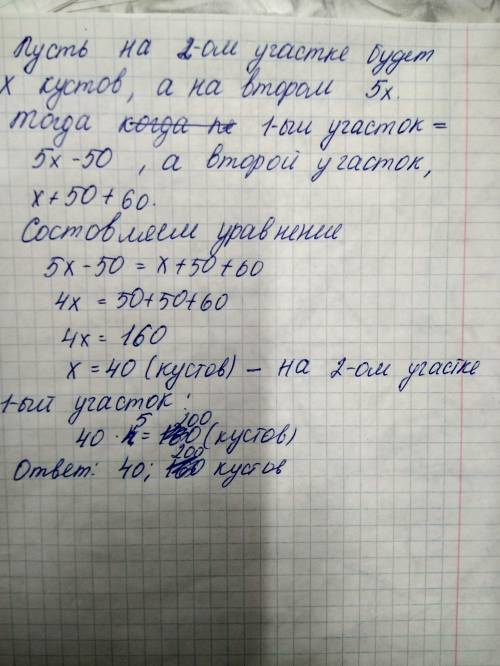 Пусть на 2-ом участке будет
x кустов, а на втором 5x.
Тогда когда 1-ый участок =
5x - 50 , а второй участок,
x + 50 + 60.
Состовляем уравнение
5x - 50 = x + 50 + 60
4x = 50 + 50 + 60
4x = 160
x = 40 (кустов) - на 2-ом участке
1-ый участок:
40 · 5 = 200 (кустов)
Ответ: 40; 200 кустов